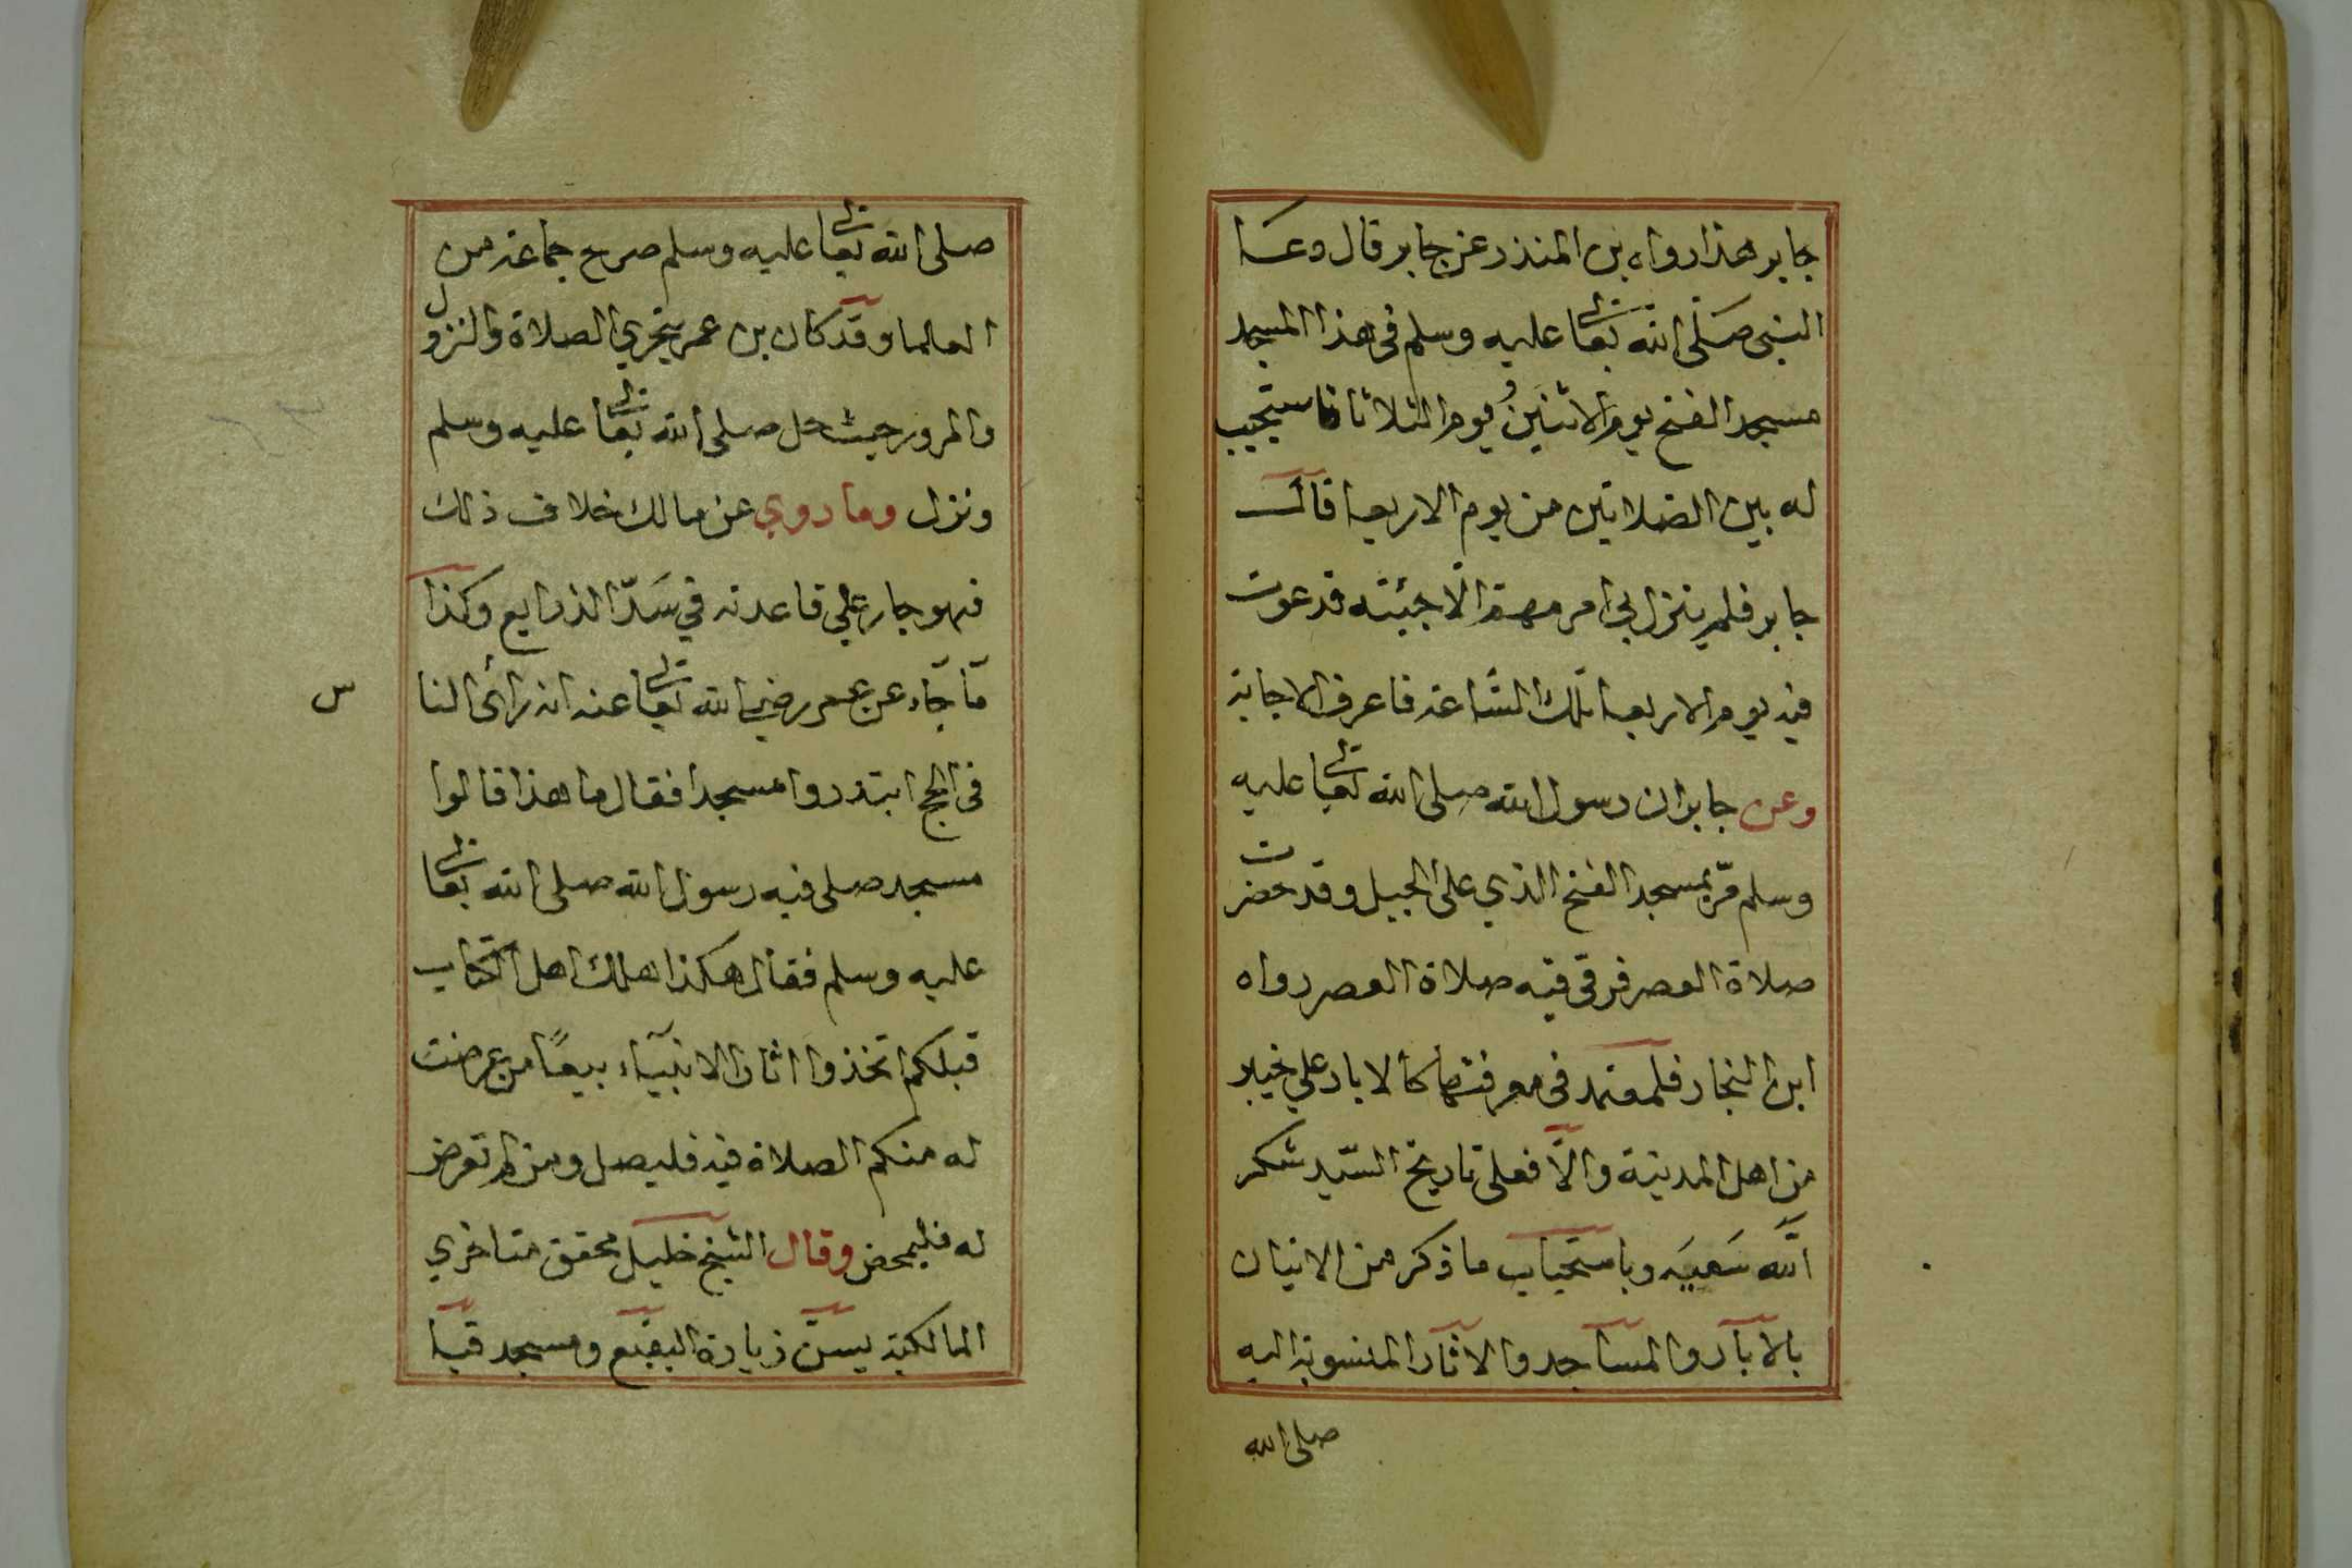 جابر هذا رواه بن المنذر عن جابر قال دعا
النبي صلى الله تعالى عليه وسلم في هذا المسجد
مسجد الفتح يوم الاثنين ويوم الثلاثا فاستجيب
له بين الصلاتين من يوم الاربعا قال
جابر فلم ينزل بي امر مهم الا جئته فدعوت
فيه يوم الاربعا تلك الساعة فاعرف الاجابة
وعن جابر ان رسول الله صلى الله تعالى عليه
وسلم مرّ بمسجد الفتح الذي على الجبل وقد حضرت
صلاة العصر فرقى فيه صلاة العصر رواه
ابن النجار فلمعتمد في معرفتها كالابار علي خبير
من اهل المدينة والّا فعلى تاريخ السّيد شكر
الله سَعيَه وباستحباب ما ذكر من الاتيان
بالآبار والمساجد والاثار المنسوبة اليه
صلى الله
صلى الله تعالى عليه وسلم صرح جماعة من
العلما وقد كان بن عمر يتحري الصلاة والنزول
والمرور حيث حل صلى الله تعالى عليه وسلم
ونزل وما روي عن مالك خلاف ذلك
فهو جار علي قاعدته في سَدّ الذرايع وكذا
ما جاء عن عمر رضي الله تعالى عنه انه رأى النا
س
في الحج ابتدروا مسجدا فقال ما هذا قالوا
مسجد صلى فيه رسول الله صلى الله تعالى
عليه وسلم فقال هكذا هلك اهل الكتاب
قبلكم اتخذوا اثار الانبيآء بيعًا من عرضت
له منكم الصلاة فيه فليصل ومن لم تعرض
له فليمض وقال الشيخ خليل محقق متاخري
المالكية يسنّ زيارة البقيع ومسجد قبا